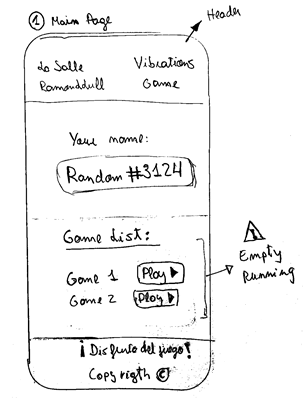 ① Main Page
Header
La Salle
Vibrations
Ramonddull
Game
Your name:
Random #3124
Game List:
Game 1 Play ▶
Game 2 Play ▶
⚠ Empty
Running
¡Disfruta del juego!
Copyrigth ©